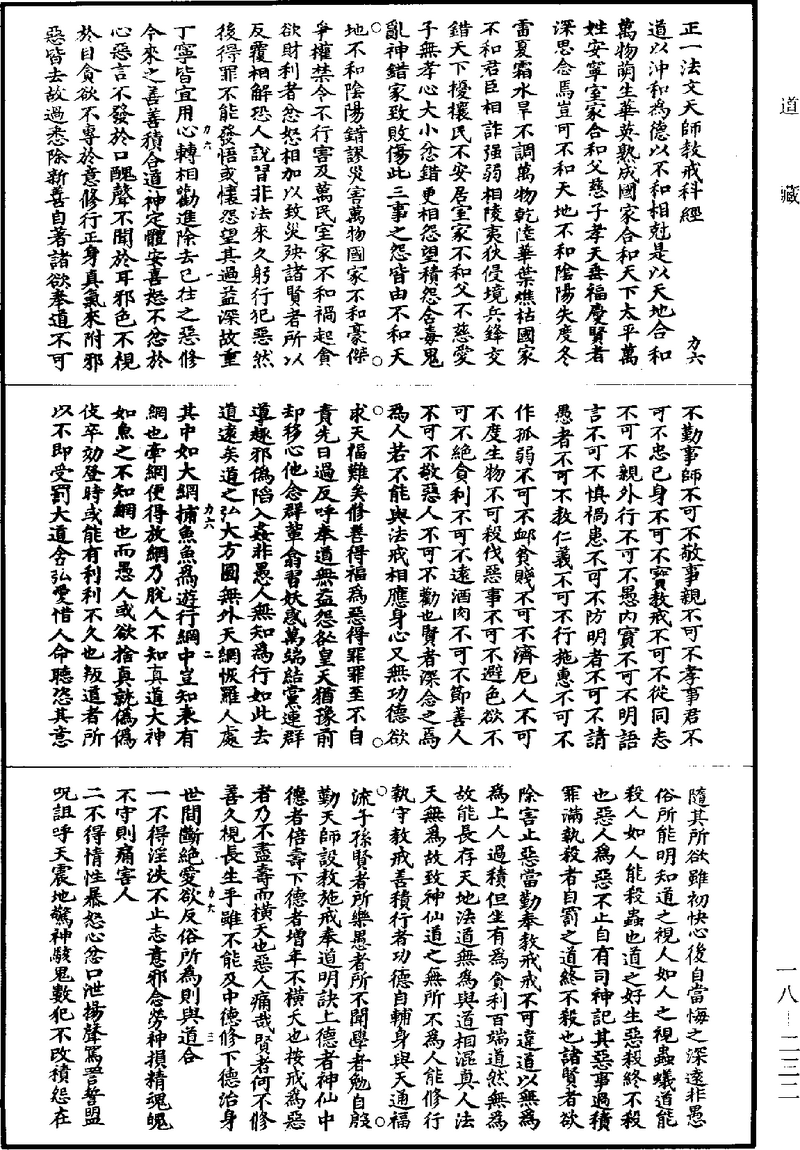 道藏
一八—二三二
正一法文天師教戒科經
力六
道以沖和為德以不和相尅是以天地合和
萬物萌生華英熟成國家合和天下太平萬
姓安寧室家合和父慈子孝天垂福慶賢者
深思念焉豈可不和天地不和陰陽失度冬
雷夏霜水旱不調萬物乾陸華葉燋枯國家
不和君臣相詐强弱相陵夷狄侵境兵鋒交
錯天下擾攘民不安居室家不和父不慈愛
子無孝心大小忿錯更相怨望積怨含毒鬼
亂神錯家致敗傷此三事之怨皆由不和天
地不和陰陽錯謬災害萬物國家不和豪傑
爭權禁令不行害及萬民室家不和禍起貪
欲財利者忿怒相加以致災殃諸賢者所以
反覆相解恐人說習非法來久躬行犯惡然
後得罪不能發悟或懷怨望其過益深故重
丁寧皆宜用心轉相勸進除去已往之惡修
力六
一
今來之善善積合道神定體安喜怒不忿於
心惡言不發於口醜聲不聞於耳邪色不視
於目貪欲不專於意修行正身真氣來附邪
惡皆去故過悉除新善自著諸欲奉道不可
不勤事師不可不敬事親不可不孝事君不
可不忠己身不可不寶教戒不可不從同志
不可不親外行不可不愚內實不可不明語
言不可不慎禍患不可不防明者不可不請
愚者不可不教仁義不可不行施惠不可不
作孤弱不可不卹貧賤不可不濟厄人不可
不度生物不可殺伐惡事不可不避色欲不
可不絕貪利不可不遠酒肉不可不節善人
不可不敬惡人不可不勸也賢者深念之焉
為人若不能與法戒相應身心又無功德欲
求天福難矣修善得福為惡得罪罪至不自
責先日過反呼奉道無益怨咎皇天猶豫前
却移心他念群輩翕習妖惑萬端結黨連群
導趣邪偽陷入姦非愚人無知為行如此去
道遠矣道之弘大方圓無外天網恢羅人處
其中如大網捕魚魚為遊行網中豈知表有
力六
二
網也牽網便得放網乃脫人不知真道大神
如魚之不知網也而愚人或欲捨真就偽偽
伎卒効登時或能有利利不久也叛道者所
以不即受罰大道含弘愛惜人命聽恣其意
隨其所欲雖初快心後自當悔之深遠非愚
俗所能明知道之視人如人之視蟲蟻道能
殺人如人能殺蟲也道之好生惡殺終不殺
也惡人為惡不止自有司神記其惡事過積
罪滿執殺者自罰之道終不殺也諸賢者欲
除害止惡當勤奉教戒戒不可違道以無為
為上人過積但坐有為貪利百端道然無為
故能長存天地法道無為與道相混真人法
天無為故致神仙道之無所不為人能修行
執守教戒善積行者功德自輔身與天通福
流子孫賢者所樂愚者所不聞學者勉自殷
勤天師設教施戒奉道明訣上德者神仙中
德者倍壽下德者增年不橫夭也按戒為惡
者乃不盡壽而橫夭也惡人痛哉賢者何不修
善久視長生乎雖不能及中德修下德治身
世間斷絕愛欲反俗所為則與道合
力六
三
一不得淫泆不止志意邪念勞神損精魂魄
不守則痛害人
二不得情性暴怒心忿口泄揚聲罵詈誓盟
呪詛呼天震地驚神駭鬼數犯不改積怨在